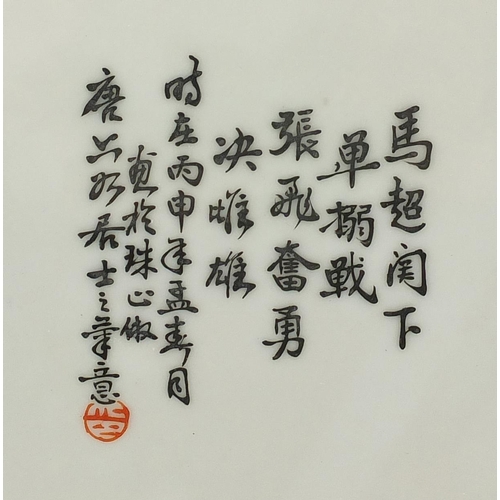 馬超関下
单搦戰
張飛奮勇
决雌雄
時在丙申年孟春月
画於珠山倣
唐六如居士之筆意